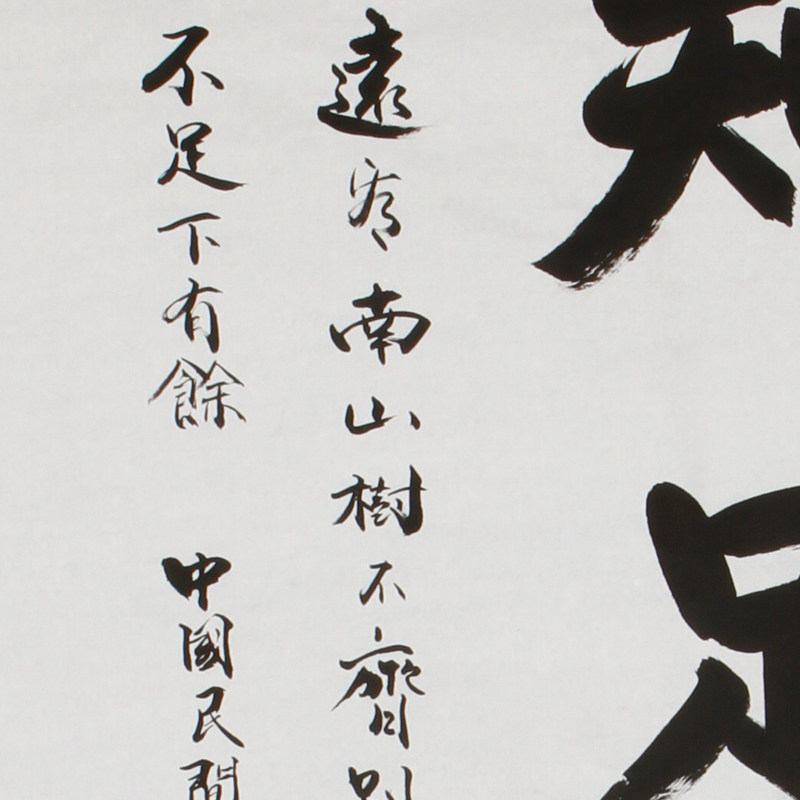 知足
遠看南山樹不齊別
不足下有餘 中國民間